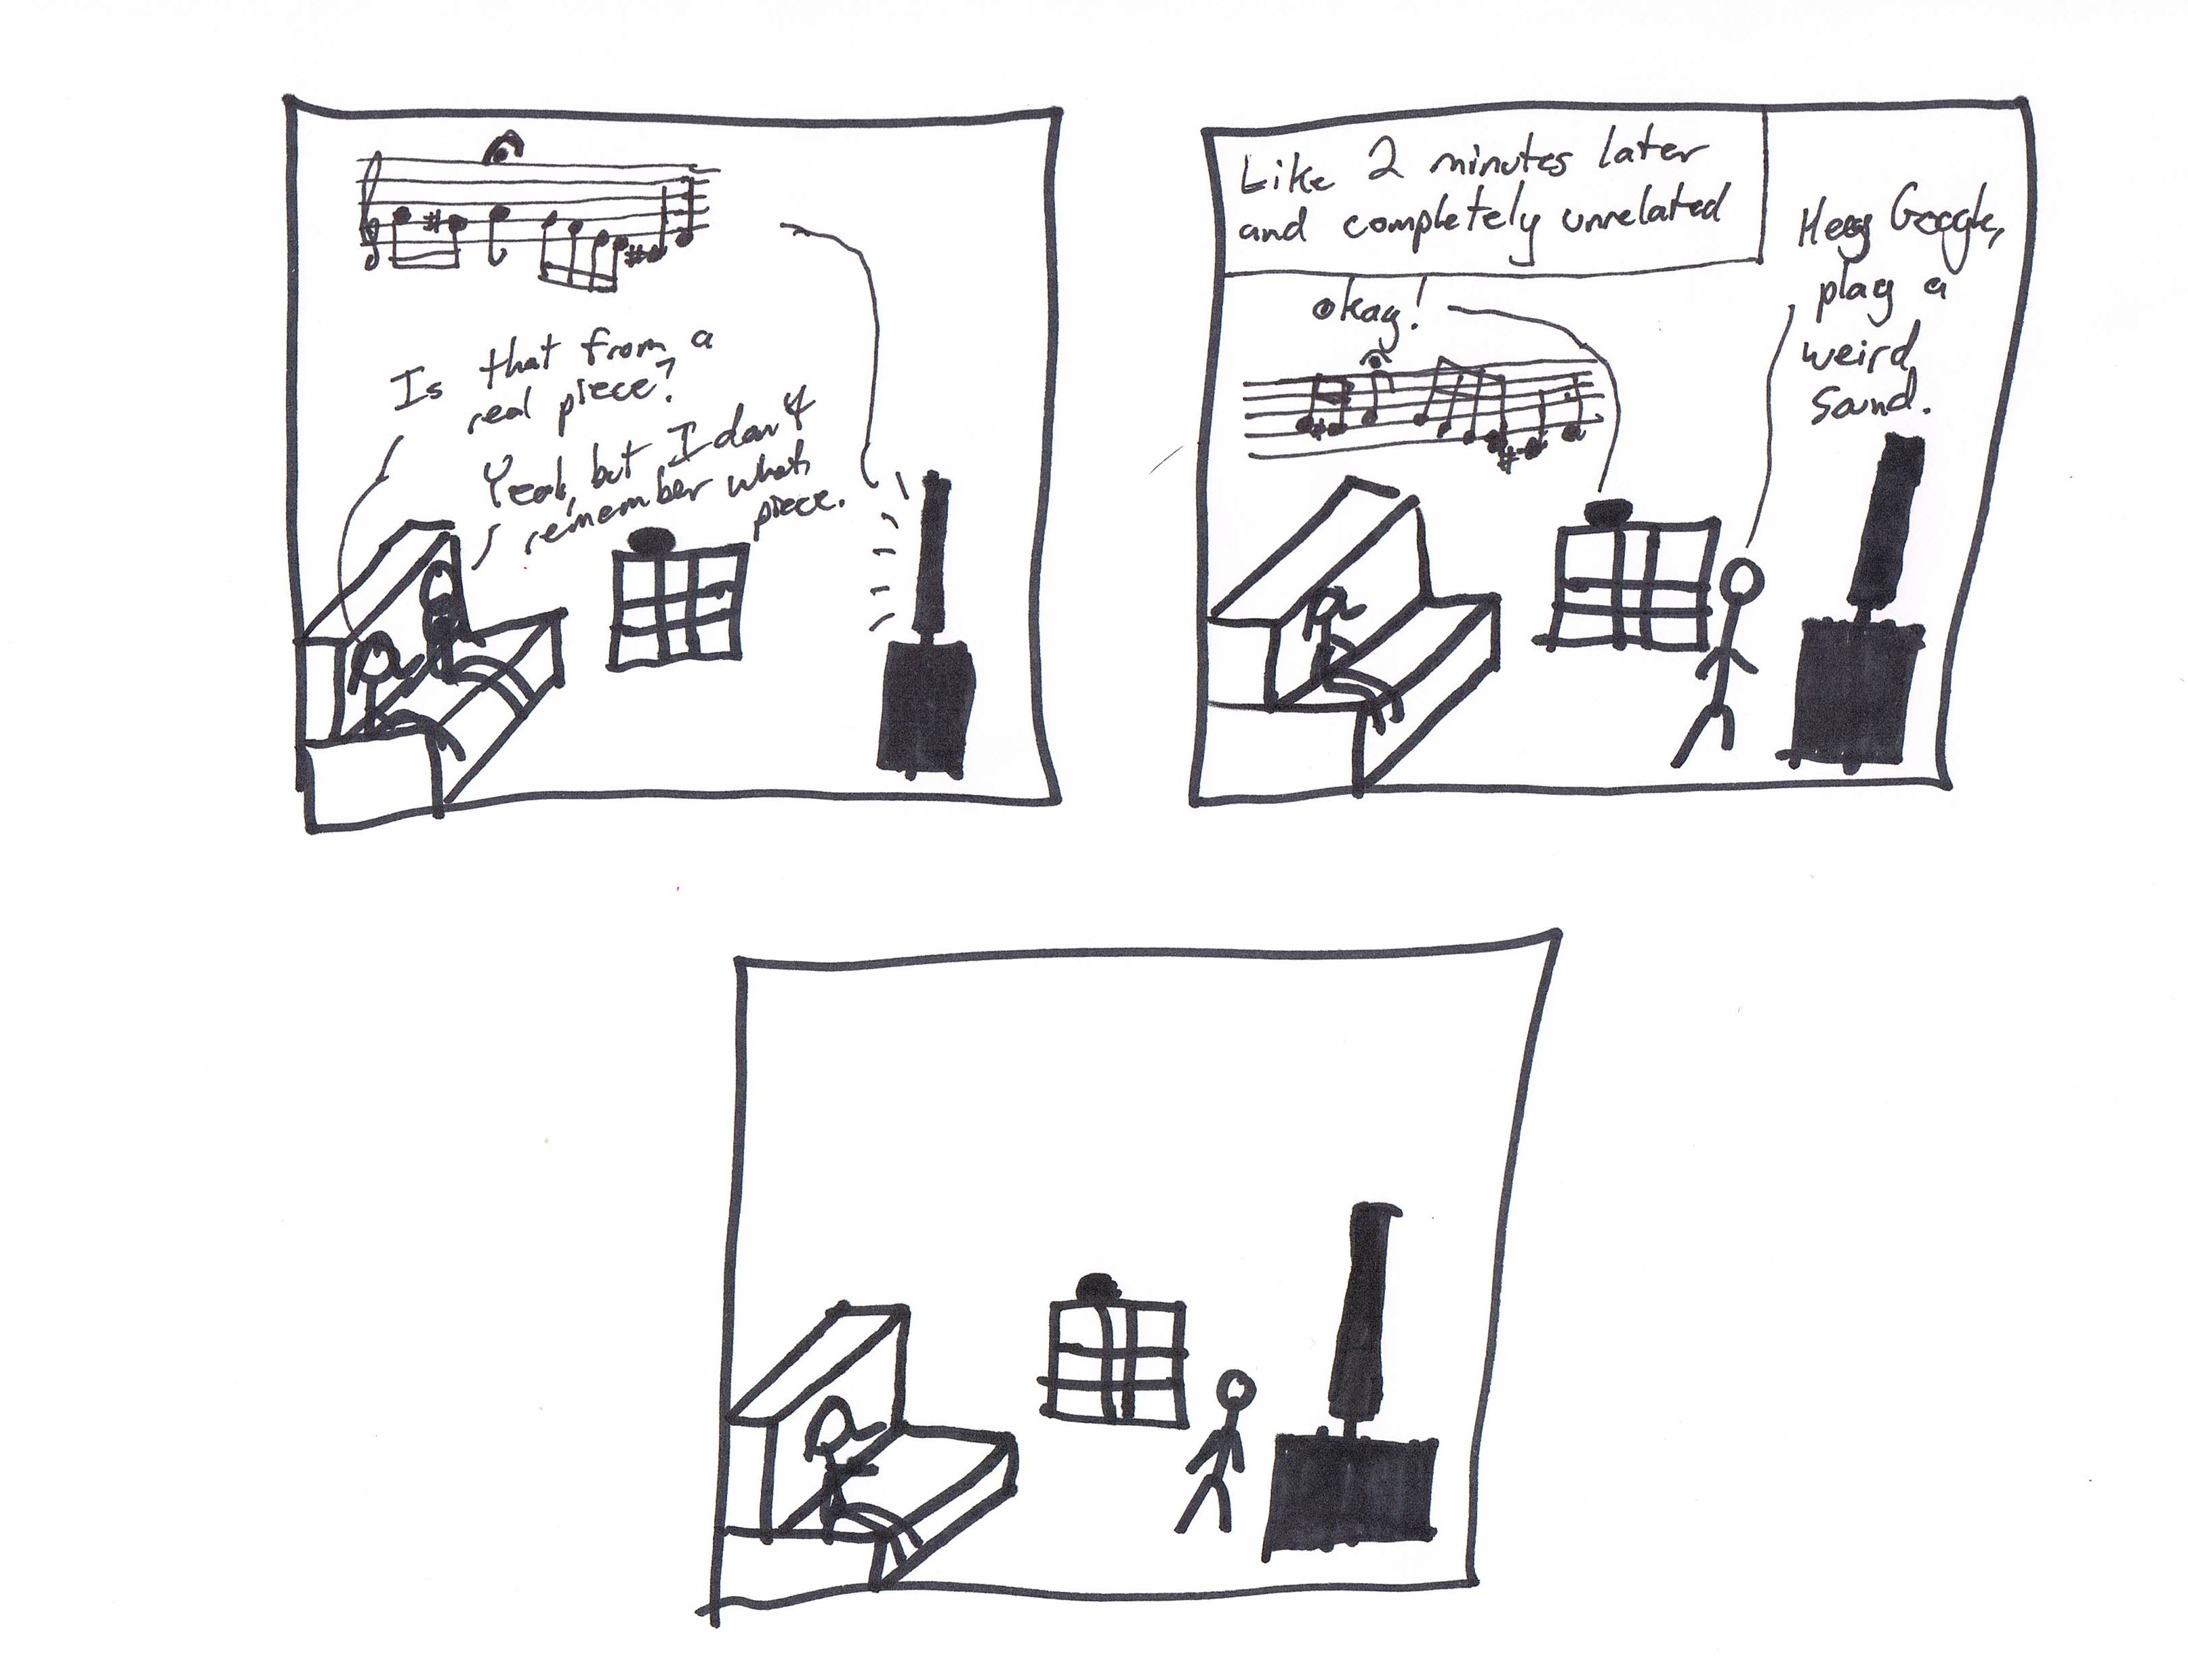 Is that from a
real piece?
Yeah, but I don't
remember what
piece.
Like 2 minutes later
and completely unrelated
okay!
Hey Google,
play a
weird
sound.